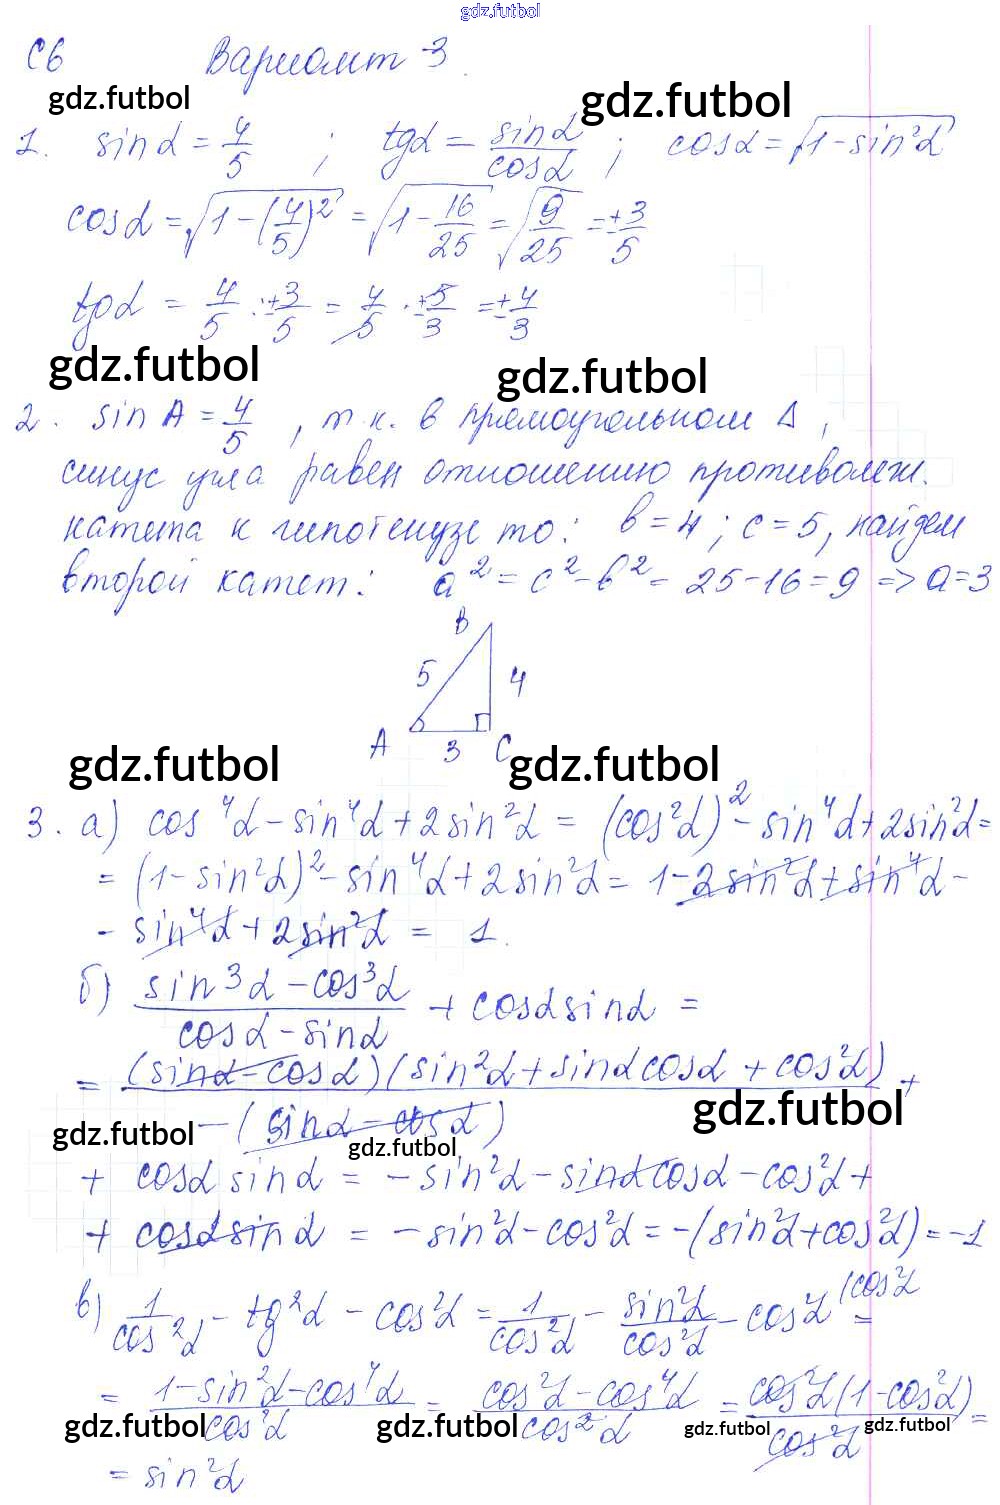 gdz.futbol
С6 Вариант 3
gdz.futbol gdz.futbol
1. sin α = 4/5 ; tg α = sin α/cos α ; cos α = √(1 - sin²α)
cos α = √(1 - (4/5)²) = √(1 - 16/25) = √(9/25) = ±3/5
tg α = 4/5 : ±3/5 = 4/5 · ±5/3 = ±4/3
gdz.futbol gdz.futbol
2. sin A = 4/5, т.к. в прямоугольном Δ,
синус угла равен отношению противолеж.
катета к гипотенузе то: b = 4; c = 5, найдем
второй катет: a² = c² - b² = 25 - 16 = 9 => a = 3
B
5 4
A 3 C
gdz.futbol gdz.futbol
3. а) cos⁴α - sin⁴α + 2sin²α = (cos²α)² - sin⁴α + 2sin²α =
= (1 - sin²α)² - sin⁴α + 2sin²α = 1 - 2sin²α + sin⁴α -
- sin⁴α + 2sin²α = 1.
б) (sin³α - cos³α)/(cos α - sin α) + cos α sin α =
= (sin α - cos α)(sin²α + sin α cos α + cos²α)/-(sin α - cos α) +
gdz.futbol gdz.futbol gdz.futbol
+ cos α sin α = - sin²α - sin α cos α - cos²α +
+ cos α sin α = - sin²α - cos²α = -(sin²α + cos²α) = -1
в) 1/cos²α - tg²α - cos²α = 1/cos²α - sin²α/cos²α - cos²α (cos²α =
= (1 - sin²α - cos⁴α)/cos²α = (cos²α - cos⁴α)/cos²α = cos²α(1 - cos²α)/cos²α =
gdz.futbol gdz.futbol gdz.futbol gdz.futbol
= sin²α